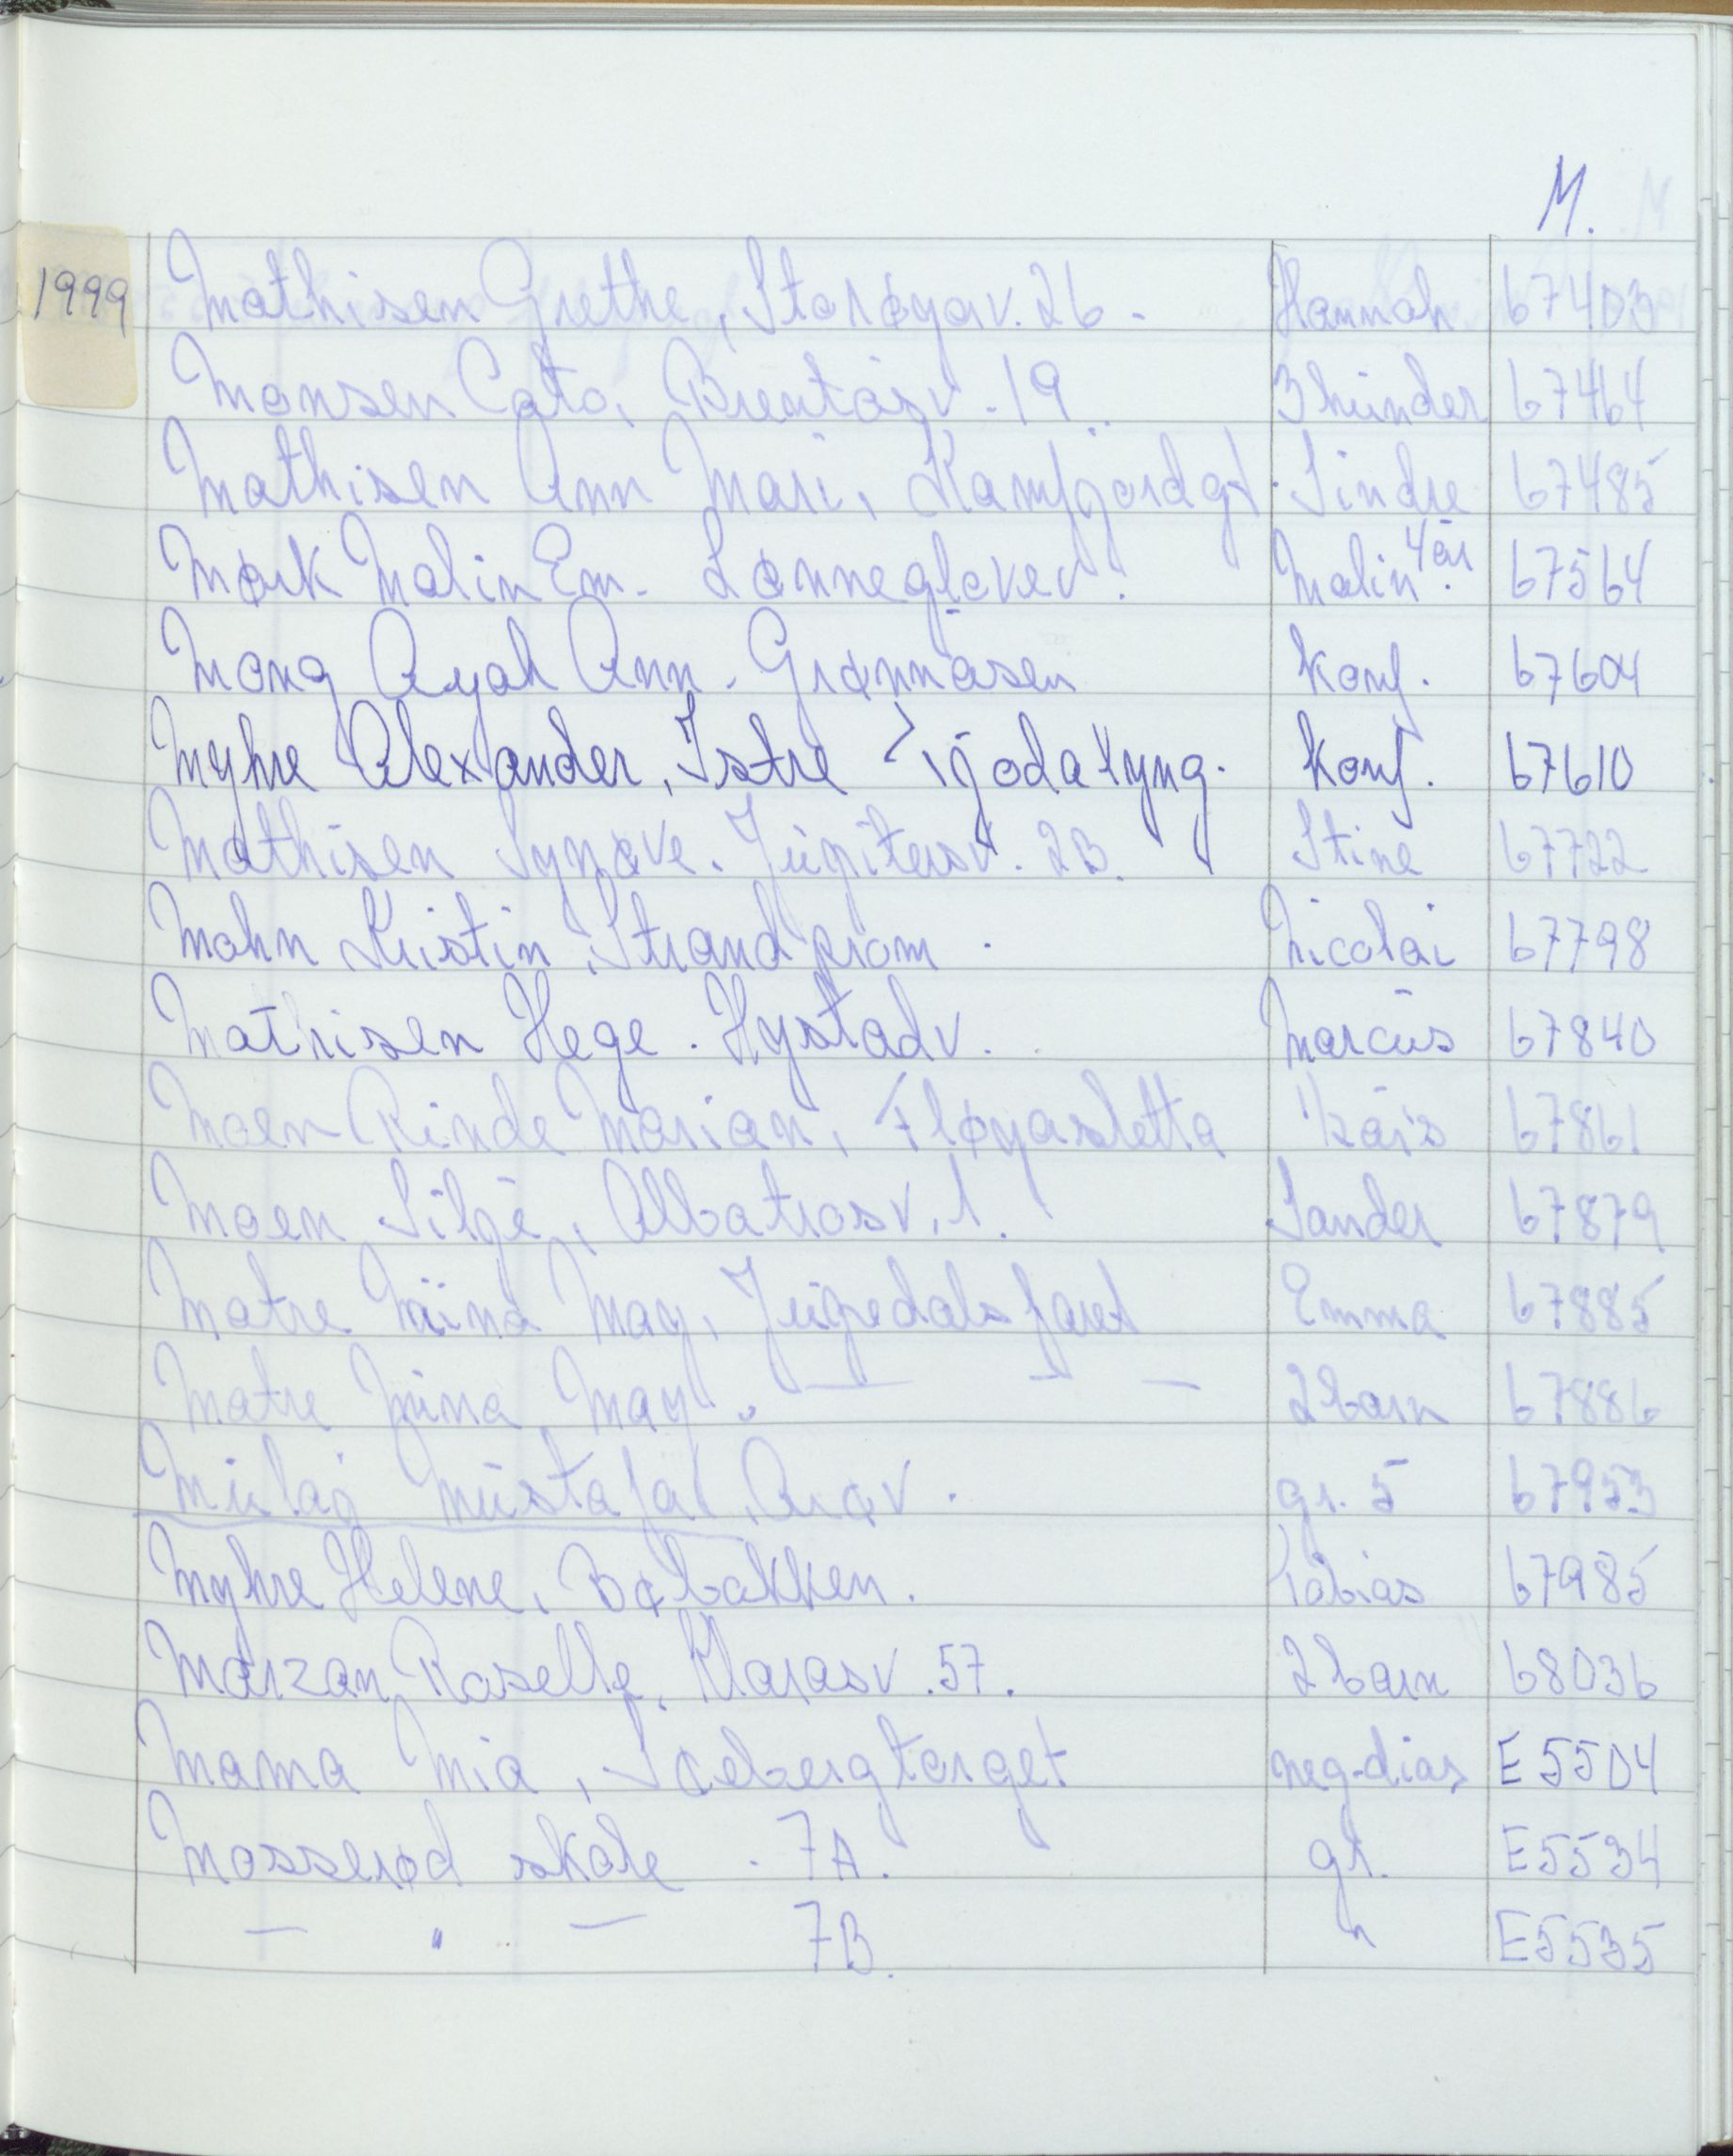 M.
1999 Mathisen Grethe, Storøyav. 26. Hannah 67403
Monsen Cato, Brentåsv. 19. 3 hunder 67464
Mathisen Ann Mari, Kamfjordgt. Sindre 67485
Mørk Malin Em. Lønnegløvev. Malin 4 år. 67564
Mong Ayah Ann. Grønnåsen Konf. 67604
Myhre Alexander, Istre Konf. 67610
Mathisen Synøve. Jupitersv. 2B. Stine 67722
Mohn Kristin, Strandprom. Nicolai 67798
Mathisen Hege. Hystadv. Marcus 67840
Moen Rinde Marian, Fløyasletta 67861
Moen Silje, Albatrosv. 1. Sander 67879
Matre Mina May, Jupedalsfaret Emma 67885
Matre Mina May. — — — 2 barn 67886
Mulaj Mustafa, gr. 5 67953
Myhre Helene, Bøbakken. Tobias 67985
Marzan Roselle, Klarasv. 57. 2 barn 68036
Mama Mia, Scebergtorget neg-dias E5504
Mosserød skole. 7A. gr. E5534
— " — 7B. " E5535